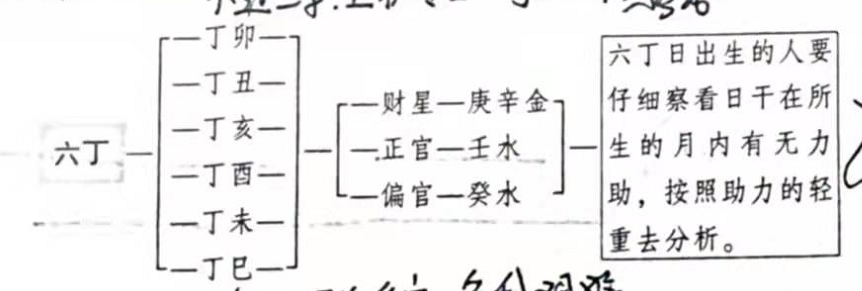 六丁
丁卯
丁丑
丁亥
丁酉
丁未
丁巳
财星—庚辛金
正官—壬水
偏官—癸水
六丁日出生的人要
仔细察看日干在所
生的月内有无力
助，按照助力的轻
重去分析。